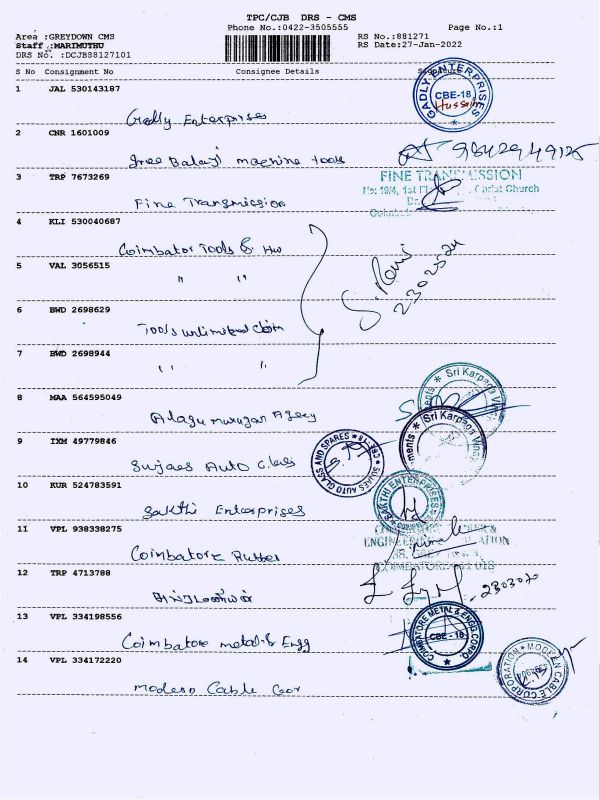 TPC/CJB DRS - CMS
Phone No.:0422-3505555
Page No.:1
Area :GREYDOWN CMS
Staff :MARIMUTHU
DRS No. :DCJB88127101
RS No.:881271
RS Date:27-Jan-2022
S No Consignment No Consignee Details
1 JAL 530143187
Gadly Enterprises
GADLY ENTERPRISES
CBE-18
Hussain
2 CNR 1601009
Sree Balaji machine tools
3 TRP 7673269
Fine Transmission
FINE TRANSMISSION
No: 19/4, 1st Christ Church
4 KLI 530040687
Coimbator Tools & Hw
5 VAL 3056515
" "
S. Ravi
2302524
6 BWD 2698629
Tools unlimited
7 BWD 2698944
" "
8 MAA 564595049
Alagu murugan Agecy
Sri Karpaga
9 IXM 49779846
Sujaes Auto Glass
SUJAES AUTO GLASS AND SPARES
CBE-18
Sri Karpaga
10 KUR 524783591
Sakthi Enterprises
SAKTHI ENTERPRISES
11 VPL 938338275
Coimbatore Rubber
12 TRP 4713788
2303020
13 VPL 334198556
Coimbatore metal & Engg
COIMBATORE METAL & ENGG. CORPO.
CBE - 18
14 VPL 334172220
Modern Cable Cor
MODERN CABLE CORPORATION